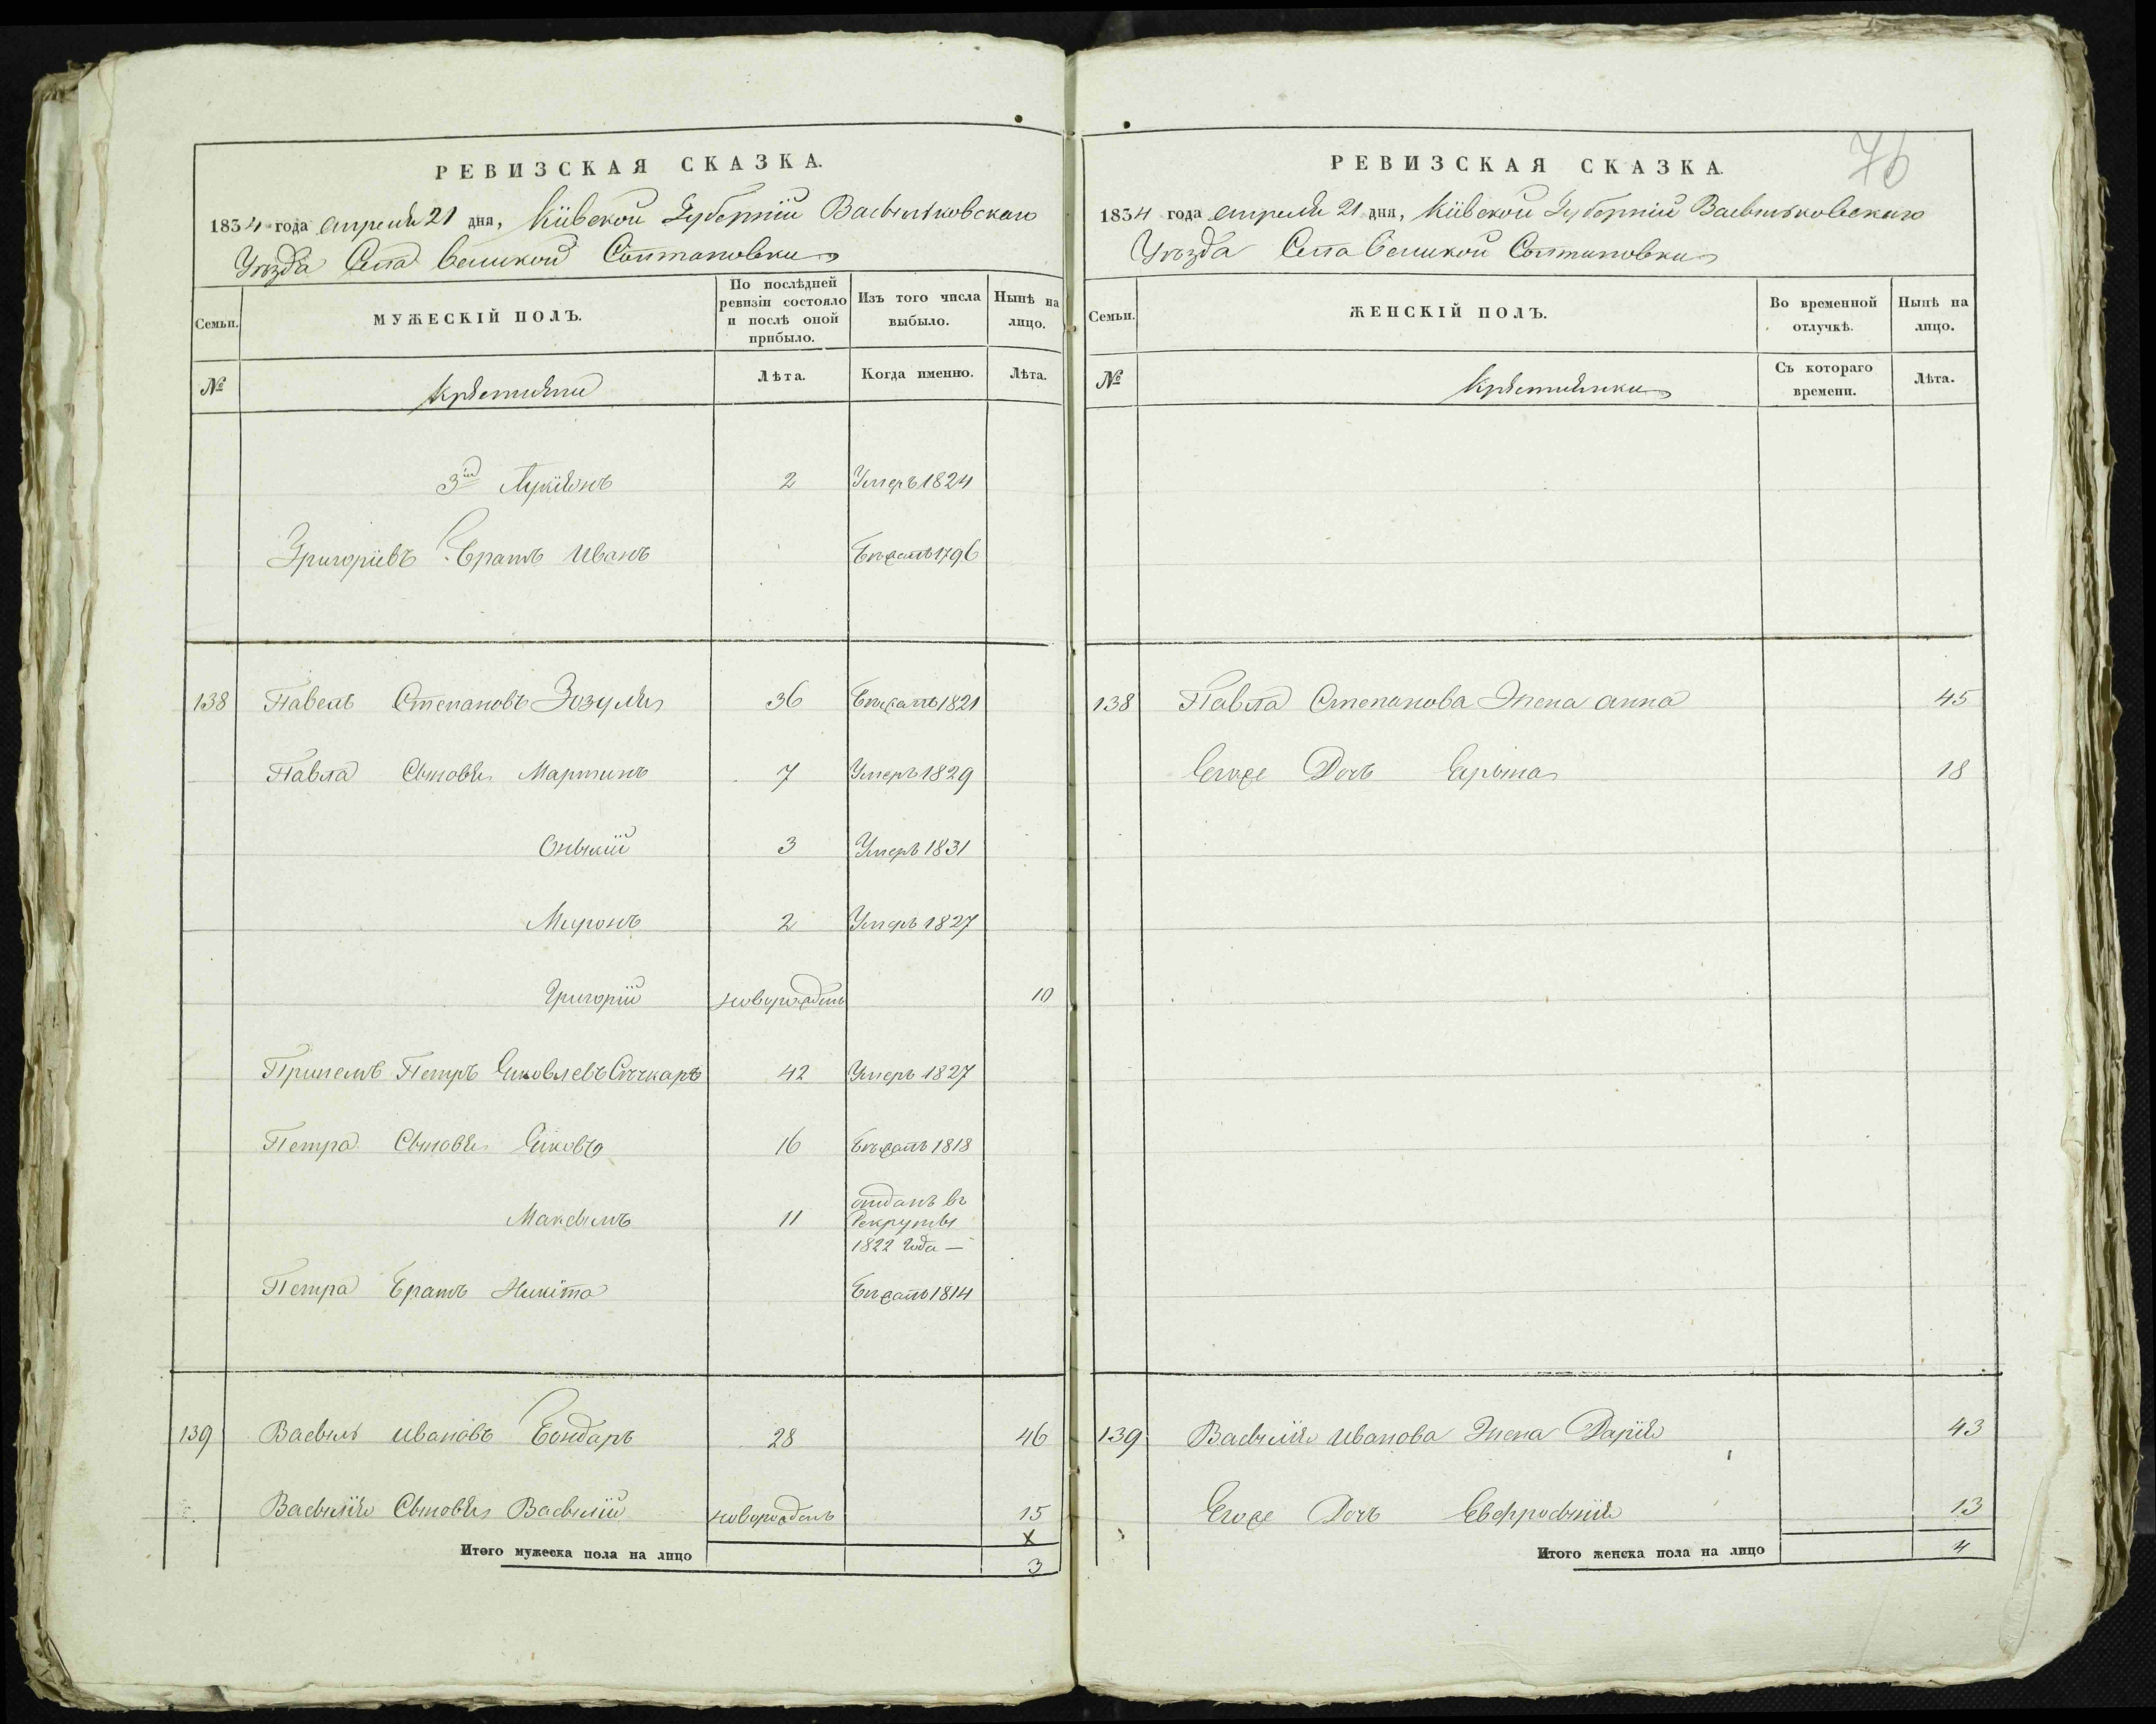 РЕВИЗСКАЯ СКАЗКА.
1834 года апреля 21 дня, Кіівской Губерніи Васильковскаго
Уѣзда Села Великой Солтановки
Семьи.
МУЖЕСКІЙ ПОЛЪ.
По послѣдней ревизіи состояло и послѣ оной прибыло.
Изъ того числа выбыло.
Нынѣ на лицо.
№
Крестяни
Лѣта.
Когда именно.
Лѣта.
3й Лукіянъ 2 Умеръ 1824
Григоріевъ Братъ Иванъ Бѣжалъ 1796
138 Павелъ Степановъ Зозуля 36 Бѣжалъ 1821
Павла Сыновья Мартинъ 7 Умеръ 1829
3 Умеръ 1831
Миронъ 2 Умеръ 1827
Григорій новорожденъ 10
Пріемъ Петръ Яковлевъ Сѣчкаръ 42 Умеръ 1827
Петра Сыновья Яковъ 16 Бѣжалъ 1818
Максымъ 11 отданъ въ
Рекруты
1822 года —
Петра Братъ Никита Бѣжалъ 1814
139 Васыль Ивановъ Бондаръ 28 46
Васылія Сыновья Васылій новорожденъ 15
х
Итого мужеска пола на лицо 3
РЕВИЗСКАЯ СКАЗКА.
76
1834 года апреля 21 дня, Кіівской Губерніи Васильковскаго
Уѣзда Села Великой Солтановки
Семьи.
ЖЕНСКІЙ ПОЛЪ.
Во временной отлучкѣ.
Нынѣ на лицо.
№
Крестянки
Съ котораго времени.
Лѣта.
138 Павла Степанова Жена Анна 45
Егоже Дочь Ирына 18
139 Васылія Иванова Жена Дарія 43
Егоже Дочь Евфросынія 13
Итого женска пола на лицо 4